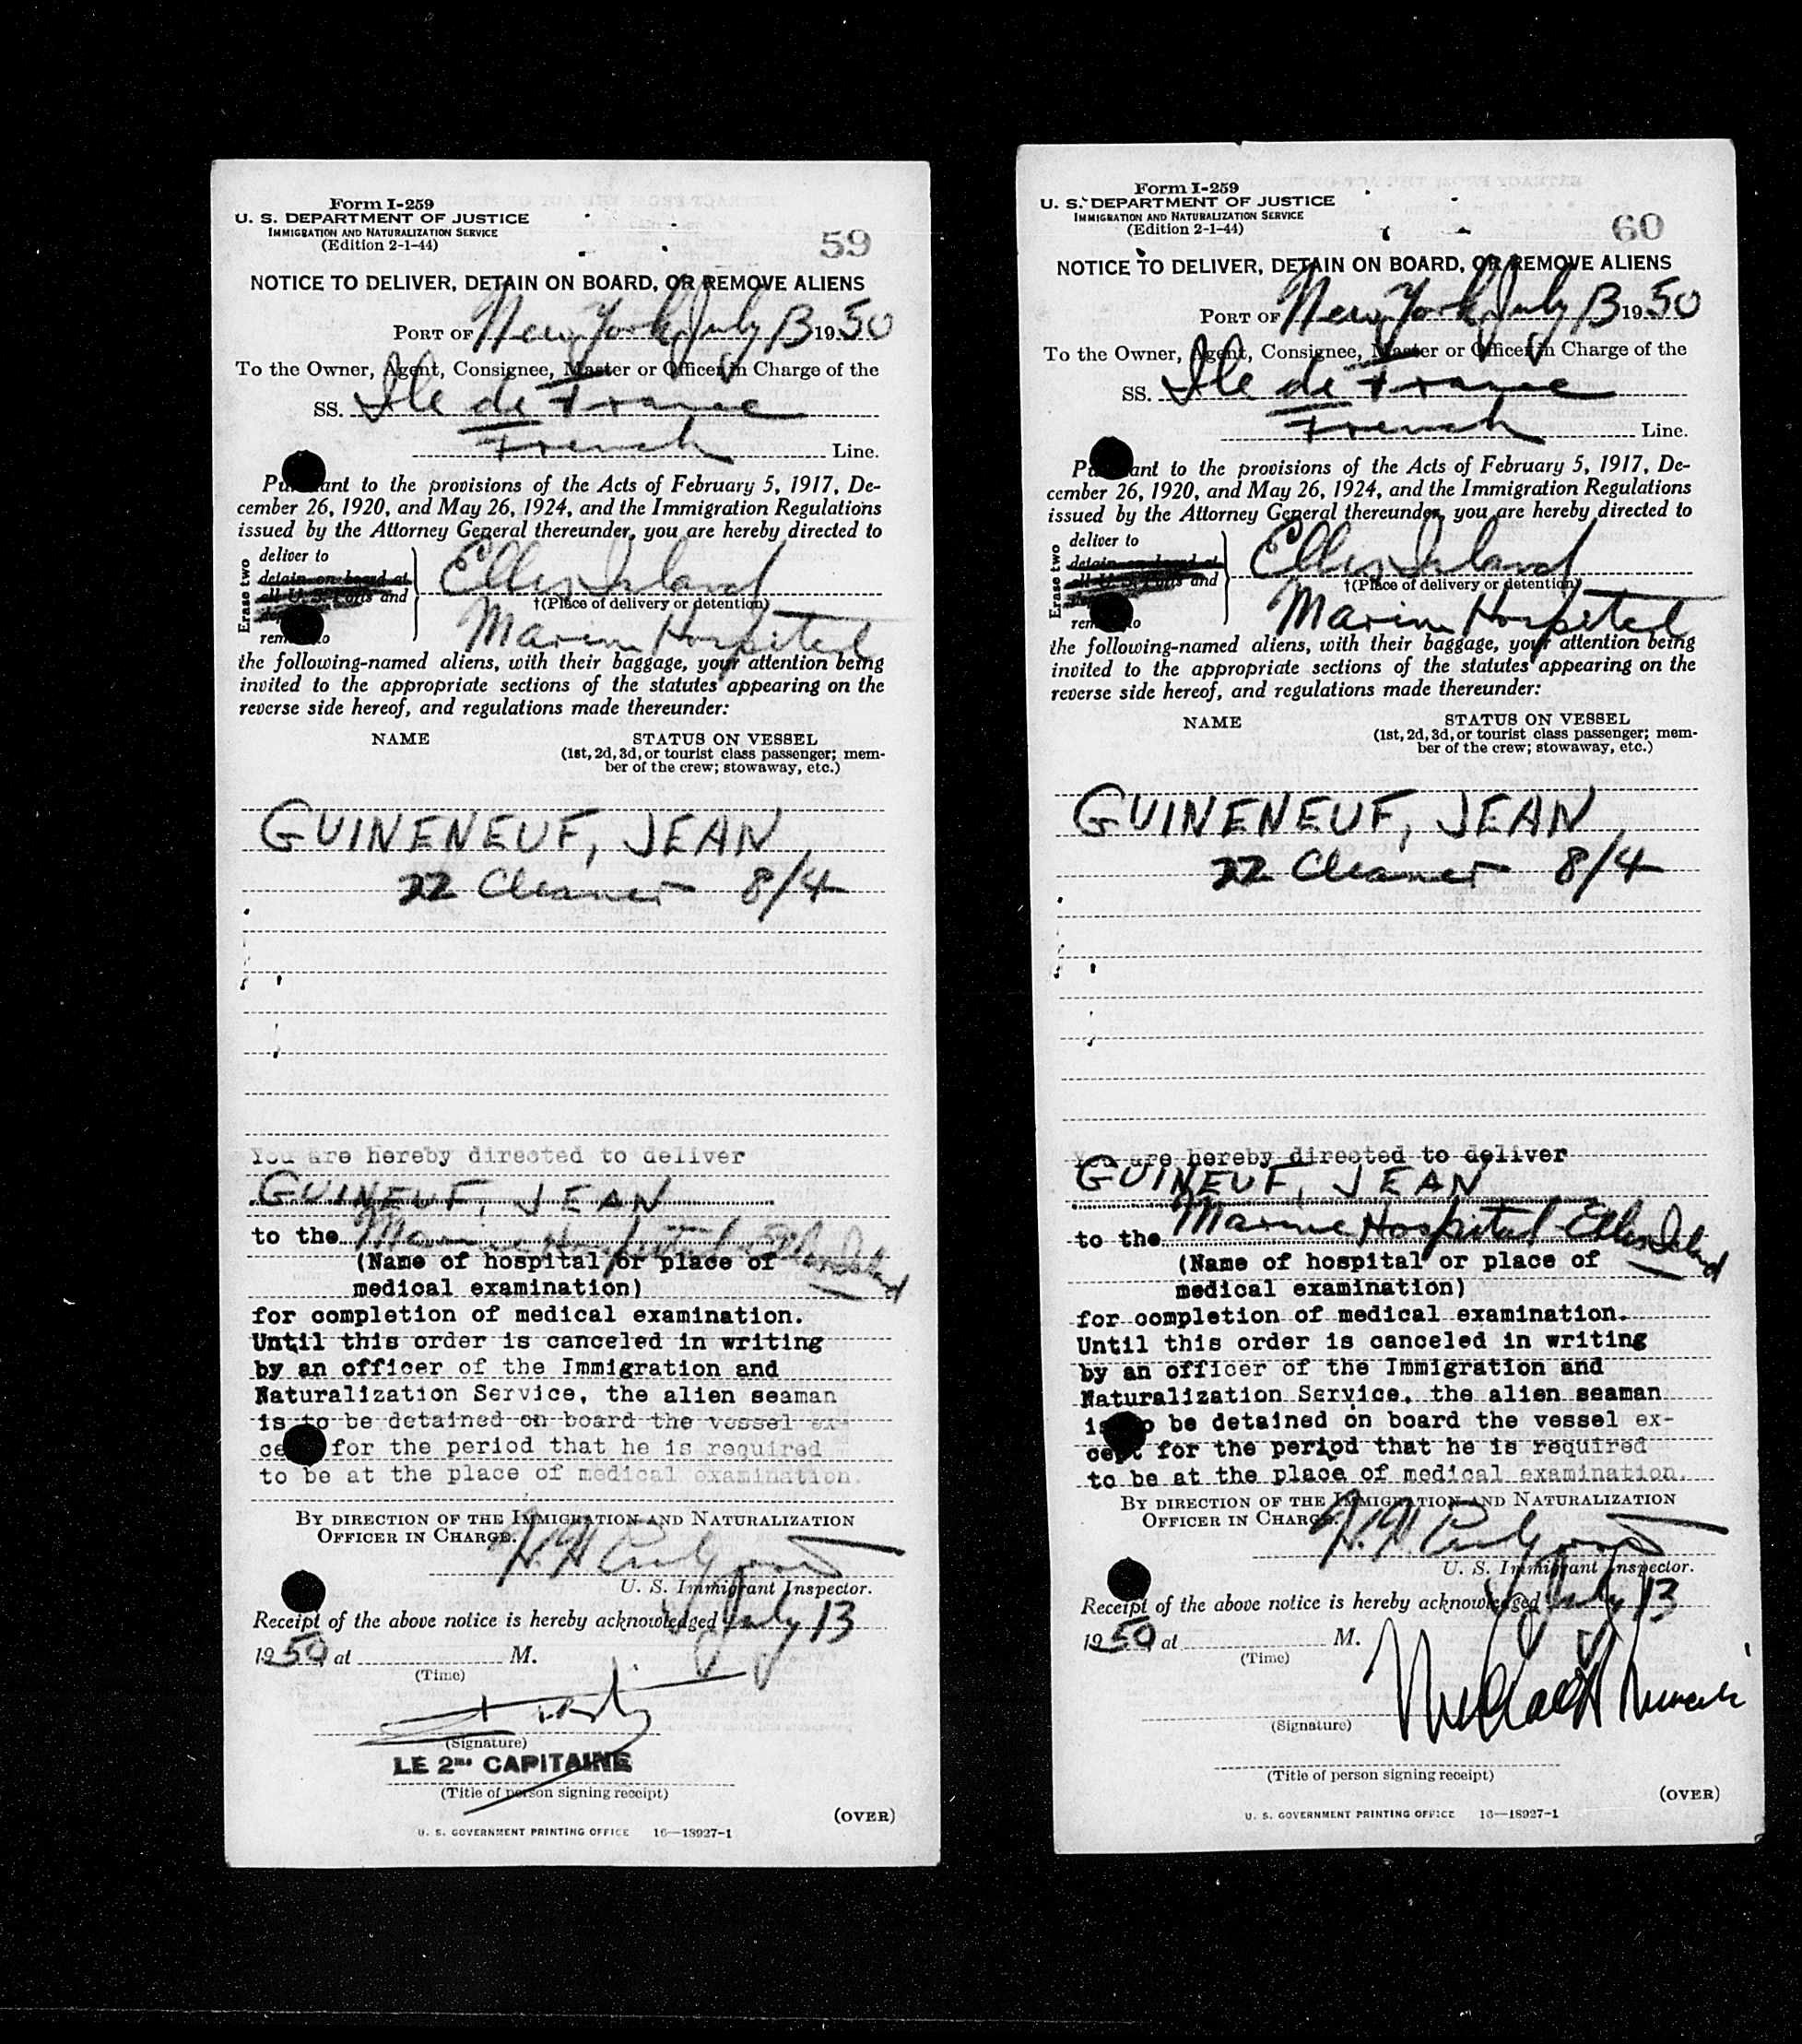 Form I-259
U. S. DEPARTMENT OF JUSTICE
IMMIGRATION AND NATURALIZATION SERVICE
(Edition 2-1-44)
59
NOTICE TO DELIVER, DETAIN ON BOARD, OR REMOVE ALIENS
PORT OF New York, July 13 1950
To the Owner, Agent, Consignee, Master or Officer in Charge of the
SS. Ile de France
French Line.
Pursuant to the provisions of the Acts of February 5, 1917, De-
cember 26, 1920, and May 26, 1924, and the Immigration Regulations
issued by the Attorney General thereunder, you are hereby directed to
Erase two
deliver to
detain on board at
all U. S. Ports and
remove to
Ellis Island
†(Place of delivery or detention)
Marine Hospital
the following-named aliens, with their baggage, your attention being
invited to the appropriate sections of the statutes appearing on the
reverse side hereof, and regulations made thereunder:
NAME STATUS ON VESSEL
(1st, 2d, 3d, or tourist class passenger; mem-
ber of the crew; stowaway, etc.)
GUINENEUF, JEAN
22 Cleaner 8/4
You are hereby directed to deliver
GUINEUF, JEAN
to the Marine Hospital Ellis Island
(Name of hospital or place of
medical examination)
for completion of medical examination.
Until this order is canceled in writing
by an officer of the Immigration and
Naturalization Service, the alien seaman
is to be detained on board the vessel ex-
cept for the period that he is required
to be at the place of medical examination.
BY DIRECTION OF THE IMMIGRATION AND NATURALIZATION
OFFICER IN CHARGE.
U. S. Immigrant Inspector.
Receipt of the above notice is hereby acknowledged July 13
1950, at M.
(Time)
(Signature)
LE 2me CAPITAINE
(Title of person signing receipt)
(OVER)
U. S. GOVERNMENT PRINTING OFFICE 16—18927-1
Form I-259
U. S. DEPARTMENT OF JUSTICE
IMMIGRATION AND NATURALIZATION SERVICE
(Edition 2-1-44)
60
NOTICE TO DELIVER, DETAIN ON BOARD, OR REMOVE ALIENS
PORT OF New York, July 13 1950
To the Owner, Agent, Consignee, Master or Officer in Charge of the
SS. Ile de France
French Line.
Pursuant to the provisions of the Acts of February 5, 1917, De-
cember 26, 1920, and May 26, 1924, and the Immigration Regulations
issued by the Attorney General thereunder, you are hereby directed to
Erase two
deliver to
detain on board at
all U. S. Ports and
remove to
Ellis Island
†(Place of delivery or detention)
Marine Hospital
the following-named aliens, with their baggage, your attention being
invited to the appropriate sections of the statutes appearing on the
reverse side hereof, and regulations made thereunder:
NAME STATUS ON VESSEL
(1st, 2d, 3d, or tourist class passenger; mem-
ber of the crew; stowaway, etc.)
GUINENEUF, JEAN
22 Cleaner 8/4
You are hereby directed to deliver
GUINEUF, JEAN
to the Marine Hospital Ellis Island
(Name of hospital or place of
medical examination)
for completion of medical examination.
Until this order is canceled in writing
by an officer of the Immigration and
Naturalization Service, the alien seaman
is to be detained on board the vessel ex-
cept for the period that he is required
to be at the place of medical examination.
BY DIRECTION OF THE IMMIGRATION AND NATURALIZATION
OFFICER IN CHARGE.
U. S. Immigrant Inspector.
Receipt of the above notice is hereby acknowledged July 13
1950, at M.
(Time)
(Signature)
(Title of person signing receipt)
(OVER)
U. S. GOVERNMENT PRINTING OFFICE 16—18927-1